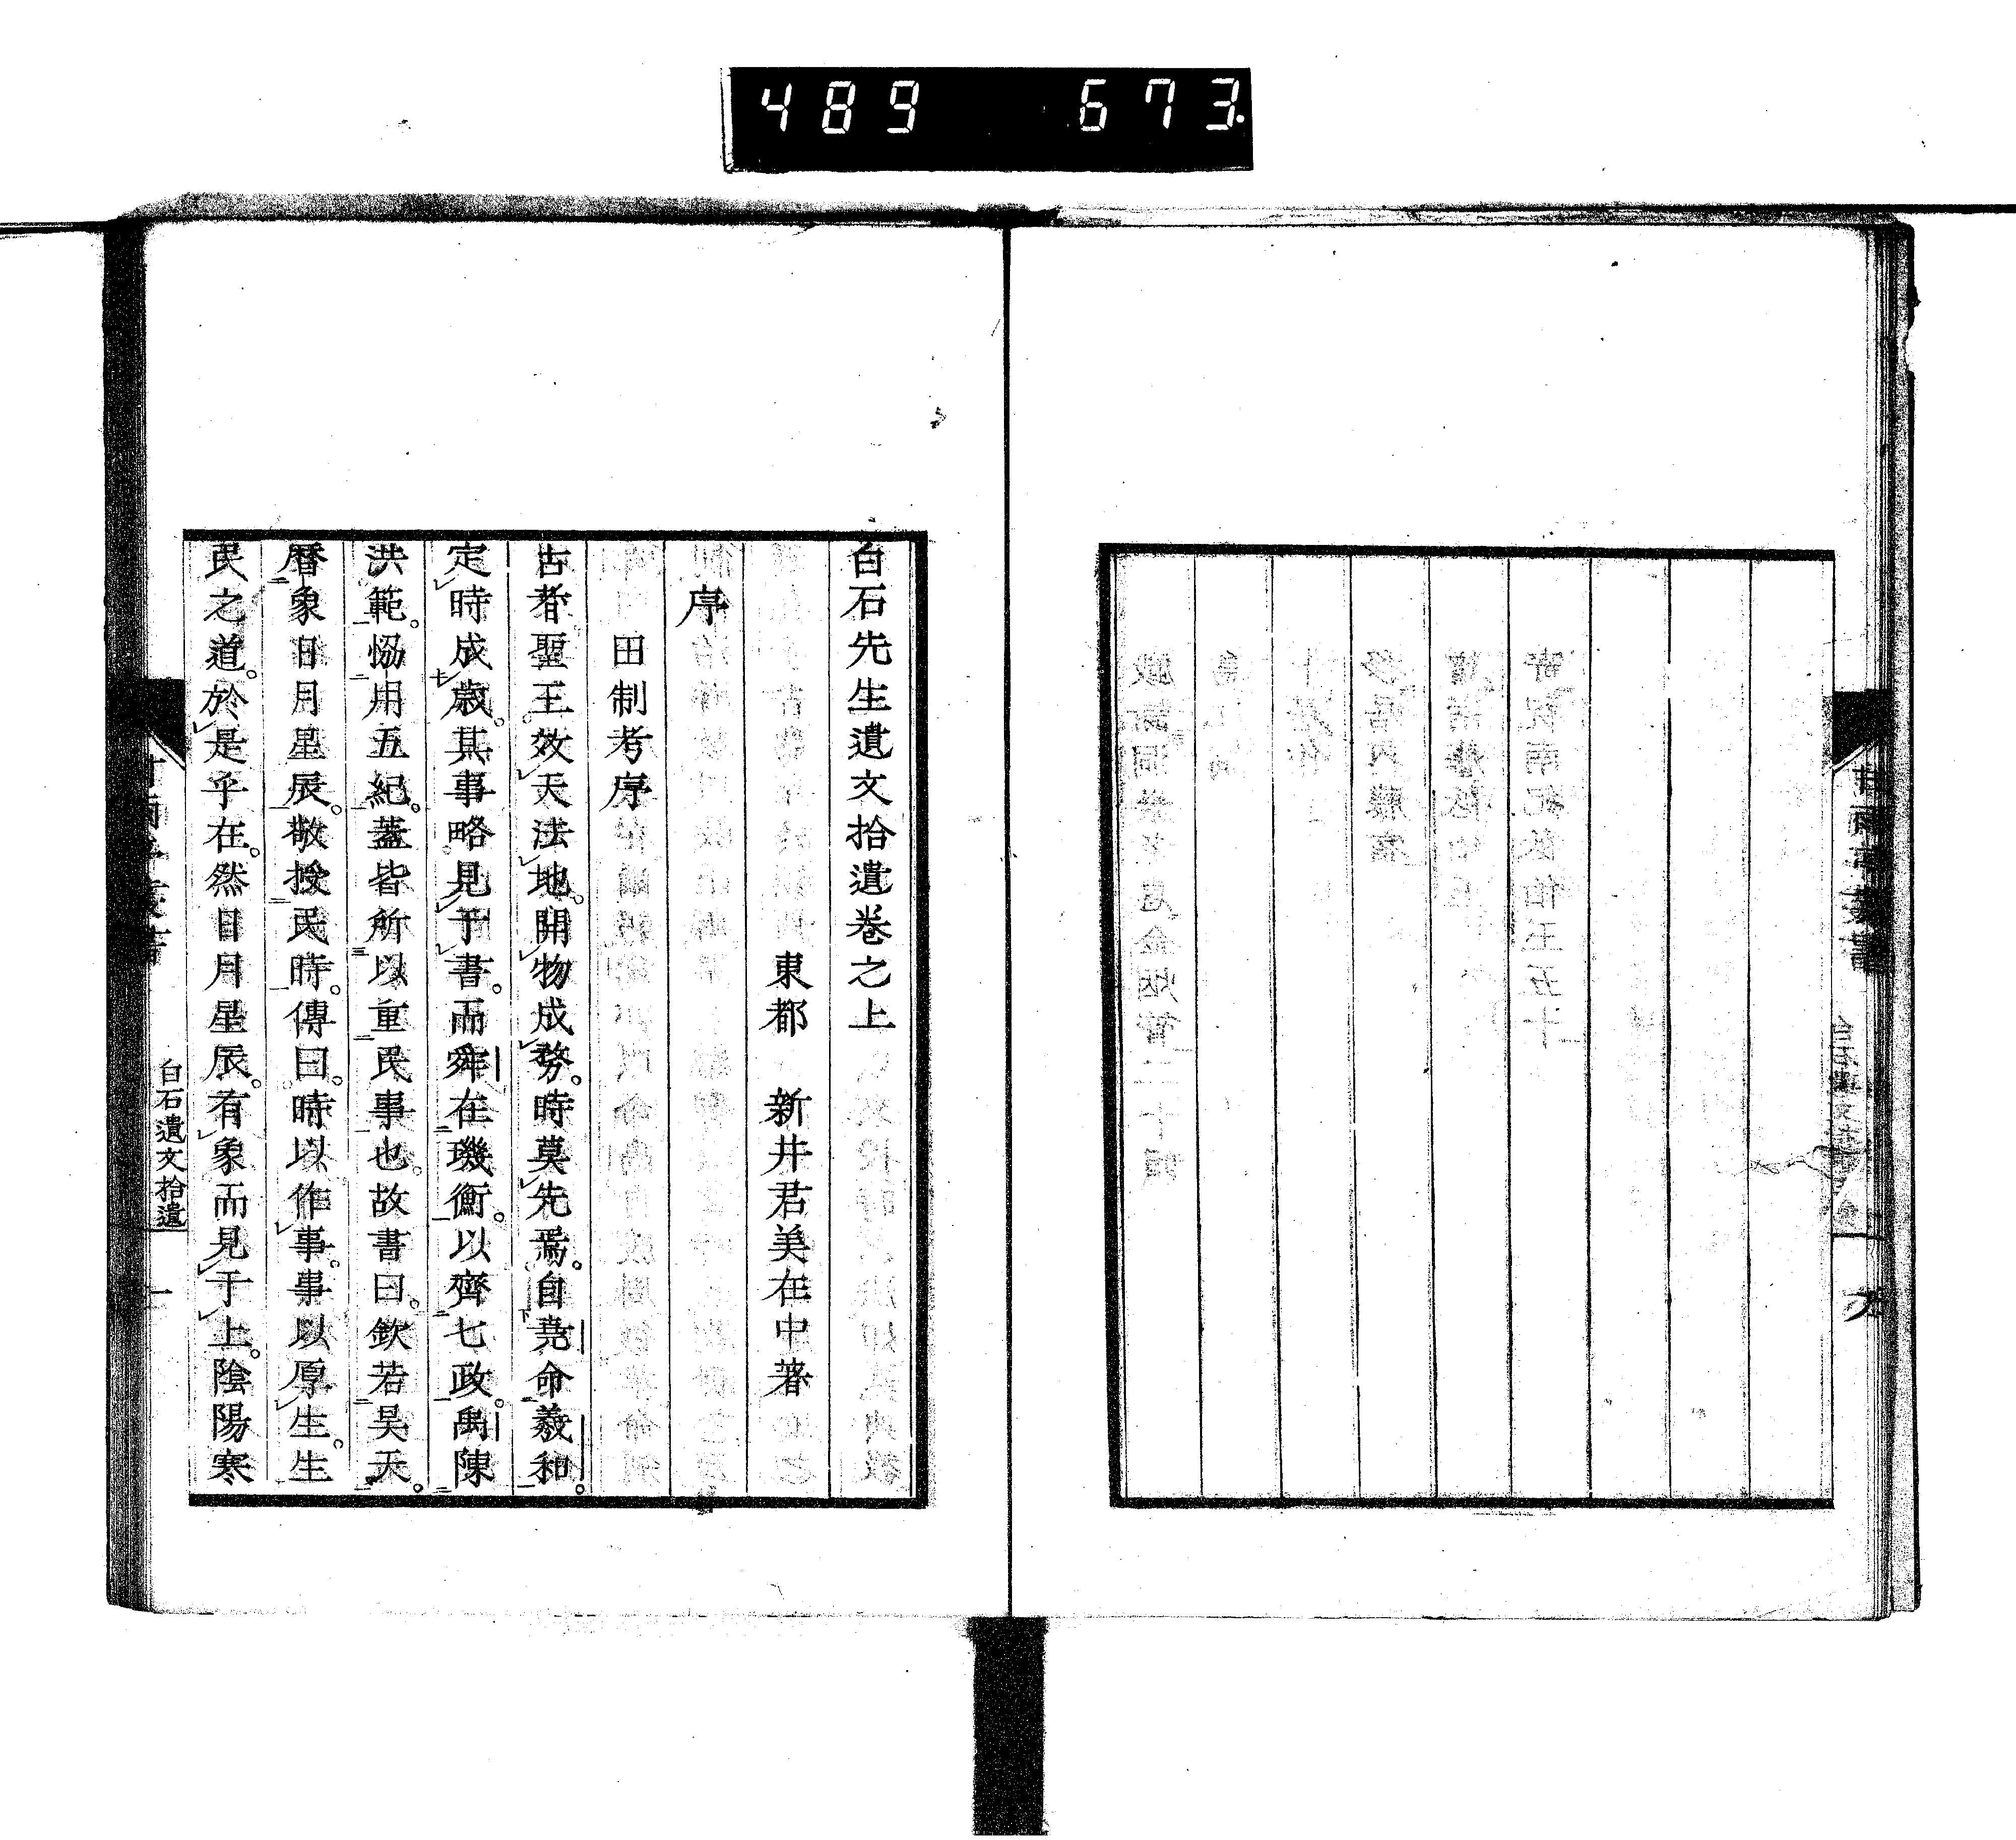 489 673
白石先生遺文拾遺卷之上
東都 新井君美在中著
序
田制考序
古者聖王效天法地。開物成務。時莫先焉。自堯命羲和。
定時成歲。其事略見于書。而舜在璣衡。以齊七政。禹陳
洪範。恊用五紀。蓋皆所以重民事也。故書曰。欽若昊天。
曆象日月星辰。敬授民時。傳曰。時以作事。事以厚生。生
民之道。於是乎在。然日月星辰。有象而見于上。陰陽寒
白石遺文拾遺 一